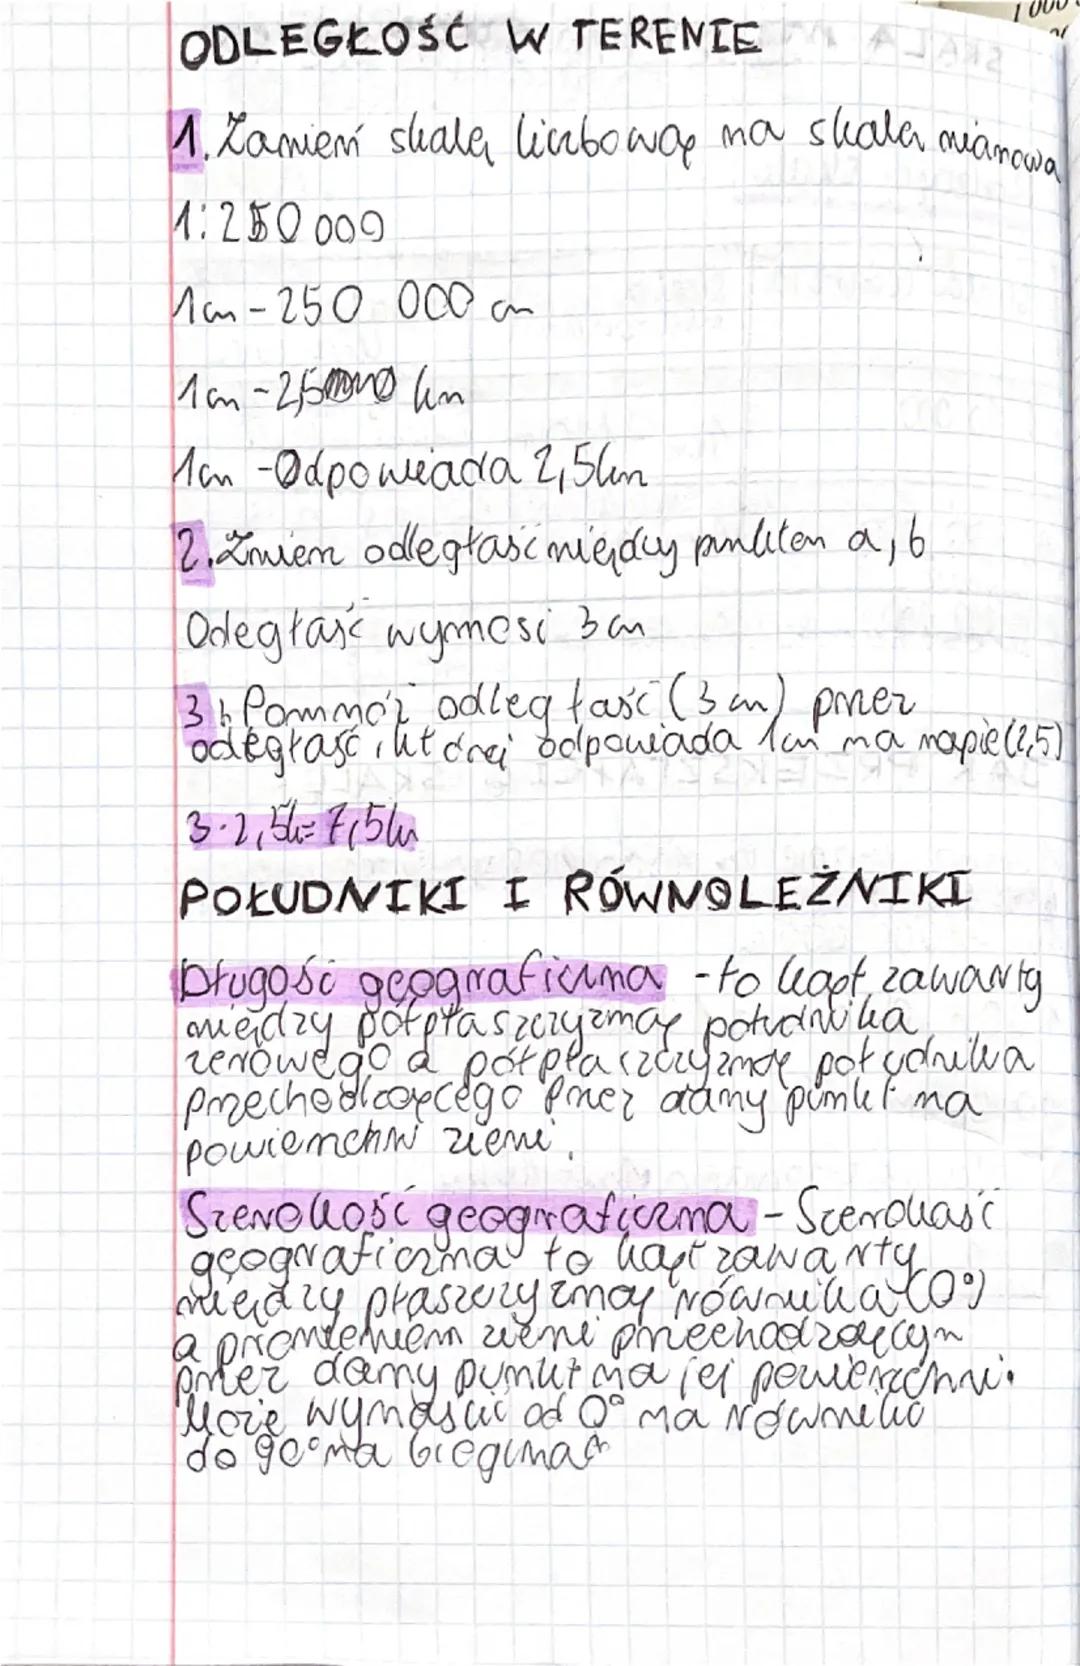 1 000
ODLEGŁOŚĆ W TERENIE
1. Zamień skalę liczbową na skalę mianową
1:250 000
1cm - 250 000 cm
1cm - 2,5 km
1cm - Odpowiada 2,5km
2. Zmierz odległość między punktem a, b
Odegłość wynosi 3cm
3. Pomnóż odległość (3 cm) przez
odegłość, której odpowiada 1cm na mapie (2,5)
3·2,5k=7,5km
POŁUDNIKI I RÓWNOLEŻNIKI
Długość geograficzna - to kąt zawarty
między półpłaszczyzną południka
zerowego a półpłaszczyzną południka
przechodzącego przez dany punkt na
powierzchni ziemi.
Szerokość geograficzna - Szerokość
geograficzna to kąt zawarty
między płaszczyzną równika (0°)
a promieniem ziemi przechodzącym
przez dany punkt na jej powierzchni.
Może wynosić od 0° na równiku
do 90° na biegunach